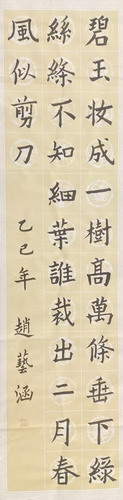 碧玉妆成一樹高萬條垂下綠
絲絛不知細葉誰裁出二月春
風似剪刀
乙巳年 趙藝涵